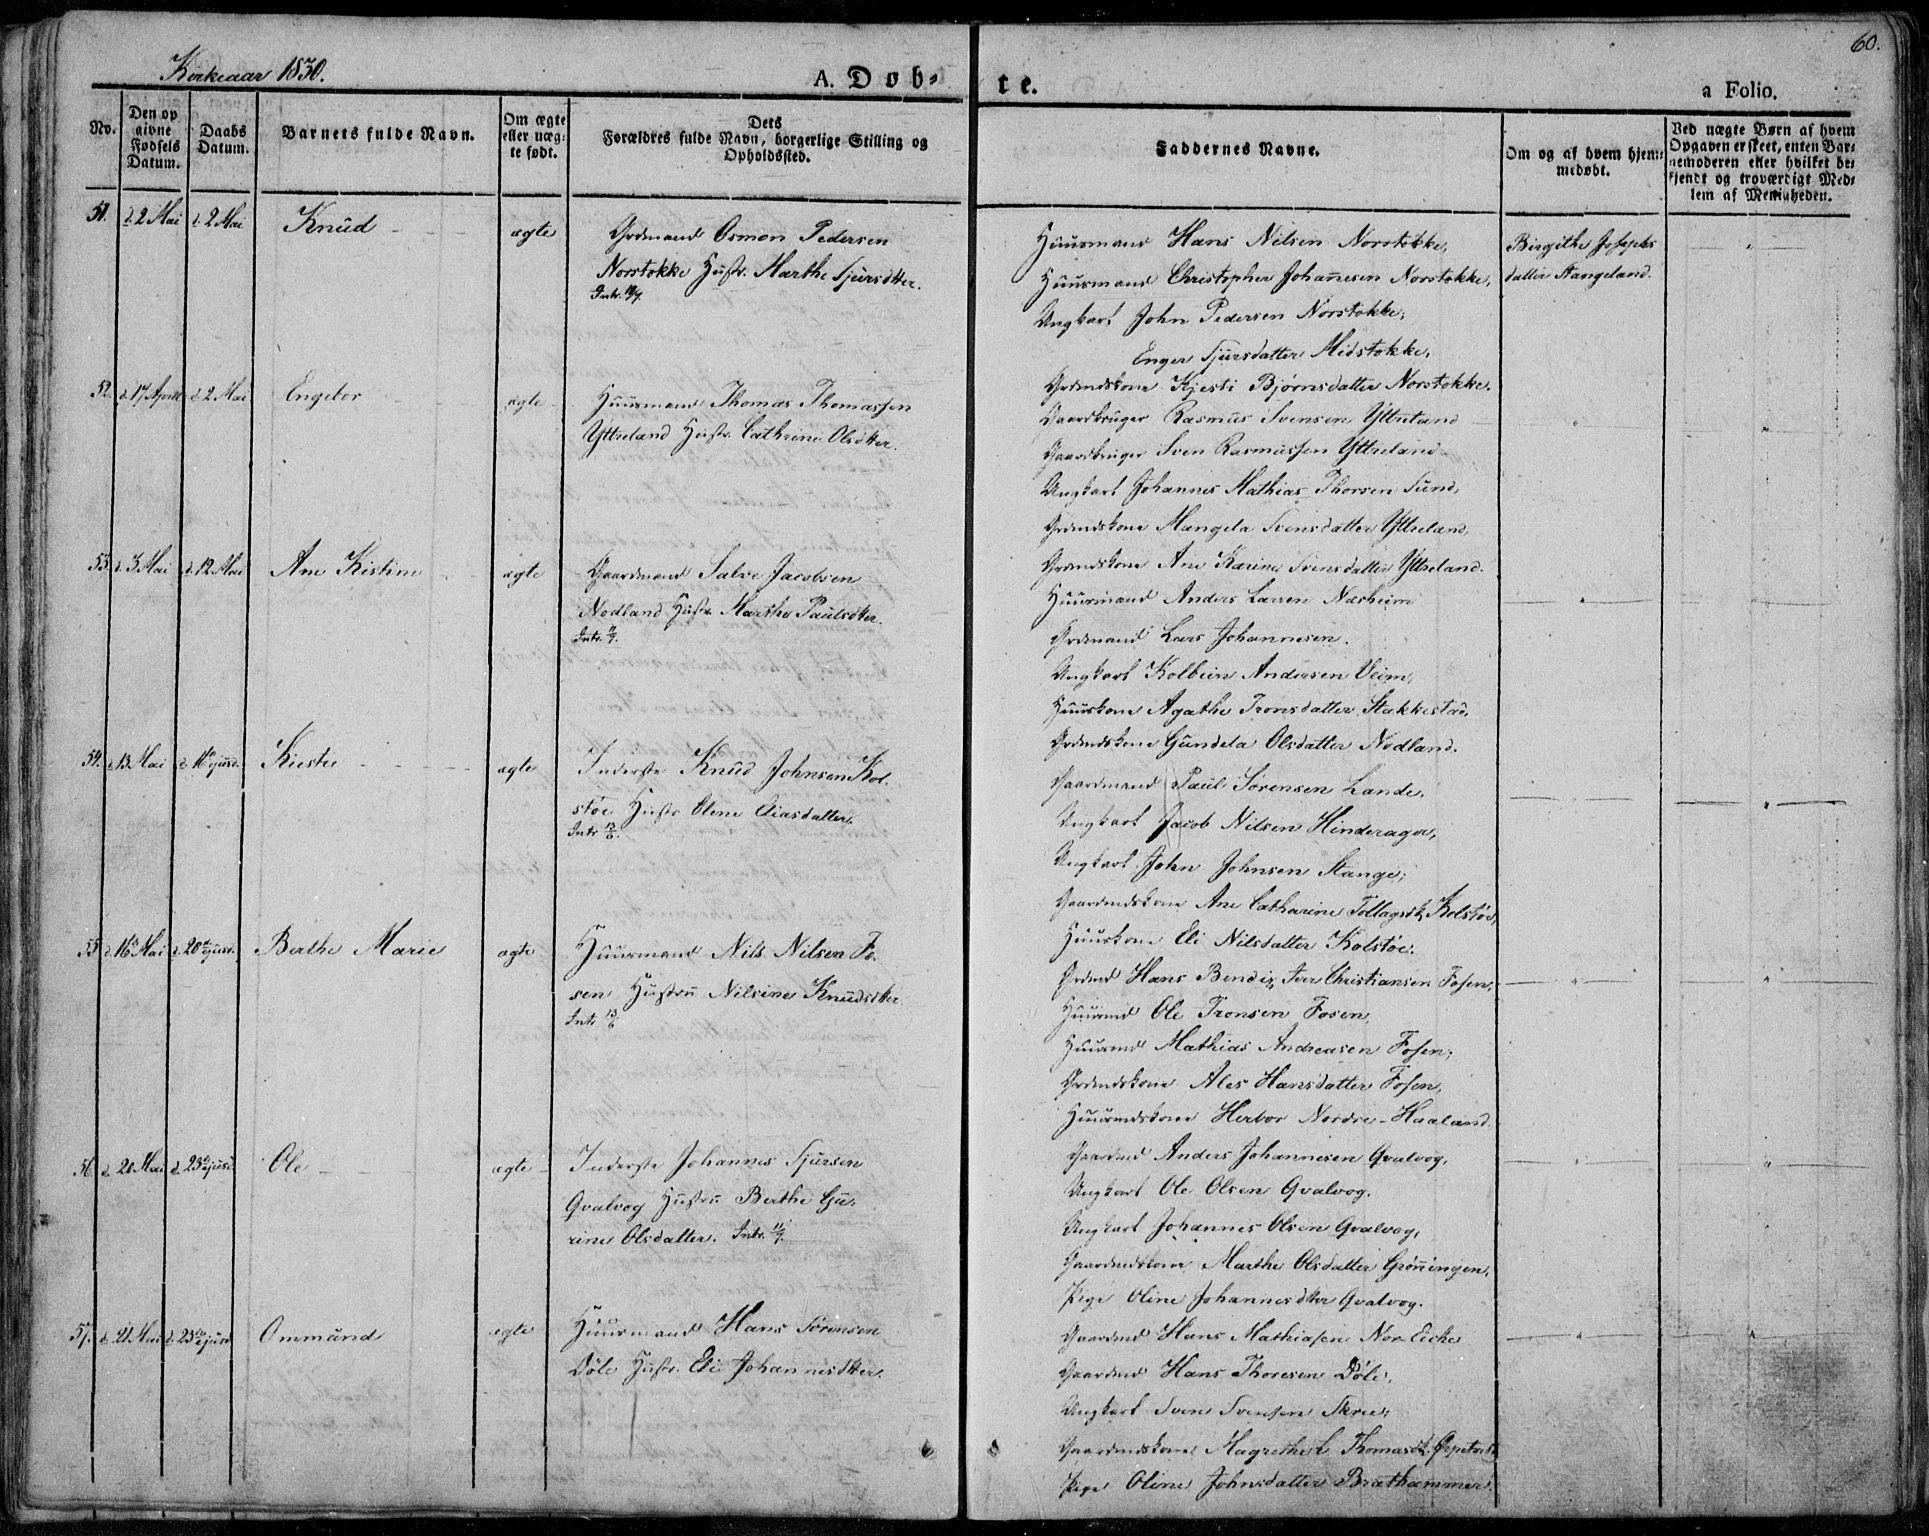 60.
Kirkeaar 1830.
A. Døb-
te.
a Folio.
No.
Den op
givne
Fødsels
Datum.
Daabs
Datum.
Barnets fulde Navn.
Om ægte
eller uæg-
te født.
Dets
Forældres fulde Navn, borgerlige Stilling og
Opholdssted.
Faddernes Navne.
Om og af hvem hjem-
medøbt.
Ved uægte Børn af hvem
Opgaven er skeet, enten Bar-
nemoderen eller hvilket be-
kjendt og troværdigt Med-
lem af Menigheden.
51. d. 2 Mai d. 2 Mai Knud ægte
Grdmand Osmon Pedersen
Norstokke Hustr. Marthe Sjursdtter.
Intr. 11/7.
Huusmand Hans Nilsen Norstokke,
Huusmand Christopher Johannesen Norstokke,
Ungkarl John Pedersen Norstokke,
Enger Sjursdatter Midstokke,
Grdmdskone Kjesti Bjørnsdatter Norstokke.
Birgithe Josephs
datter Stangeland.
52. d. 17 April d. 2 Mai Engebor ægte
Huusmand Thomas Thomassen
Yttreland Hustr. Cathrine Olsdtter.
Gaardbruger Rasmus Svensen Yttreland
Gaardbruger Sven Rasmussen Yttreland
Ungkarl Johannes Mathias Thorsen Sund,
Grdmdskone Mangela Svensdatter Yttreland,
Grdmdskone Ane Karine Svensdatter Yttreland.
53. d. 3 Mai d. 12 Mai Ane Kistine ægte
Gaardmand Salve Jacobsen
Nodland Hustr. Marthe Paulsdtter.
Intr. 11/7.
Huusmand Anders Larsen Næsheim
Grdmand Lars Johannesen.
Ungkarl Kolbein Andersen Veim,
Huuskone Agathe Tronsdatter Stakkestad,
Grdmdskone Gundela Olsdatter Nodland.
54. d. 13 Mai d. 16 ejusd. Kiestie ægte
Inderste Knud Johnsen Kol-
støe Hustr. Olene Eliasdatter.
Intr. 13/6.
Gaardmand Paul Sørensen Lande,
Ungkarl Jacob Nilsen Hinderager,
Ungkarl John Johnsen Stange;
Gaardmdskone Ane Catharine Tollagsdt. Kolstøe,
Huuskone Eli Nilsdatter Kolstøe.
55. d. 16 Mai d. 20 ejusd. Berthe Marie ægte
Huusmand Nils Nilsen Fo-
sen Hustru Nilsine Knudsdtter
Intr. 13/6
Grdmd Hans Bendix Iver Christiansen Fosen,
Huusmd Ole Tronsen Fosen,
Huusmd Mathias Andreasen Fosen;
Grdmdskone Ales Hansdatter Fosen,
Huusmdskone Herbor Nordre-Haaland.
56. d. 20 Mai d. 23 ejusd. Ole ægte
Inderste Johannes Sjursen
Qvalvog Hustru Berthe Gu-
rine Olsdatter. Intr. 11/7.
Gaardmd Anders Johannesen Qvalvog,
Ungkarl Ole Olsen Qvalvog.
Ungkarl Johannes Olsen Qvalvog,
Gaardmdskone Marthe Olsdatter Grønningen,
Pige Oline Johannesdtter Qvalvog.
57. d. 21 Mai d. 23 ejusd. Ommund ægte
Huusmand Hans Sørensen
Døle Hustr. Eli Johannesdtter.
Gaardmd Hans Mathiasen Nor-Eike
Gaardmd Hans Thoresen Døle.
Ungkarl Svend Svensen Skree,
Gaardmdskone Magrethe L. Thomasdt.
Pige Oline Johnsdatter Brathammer.